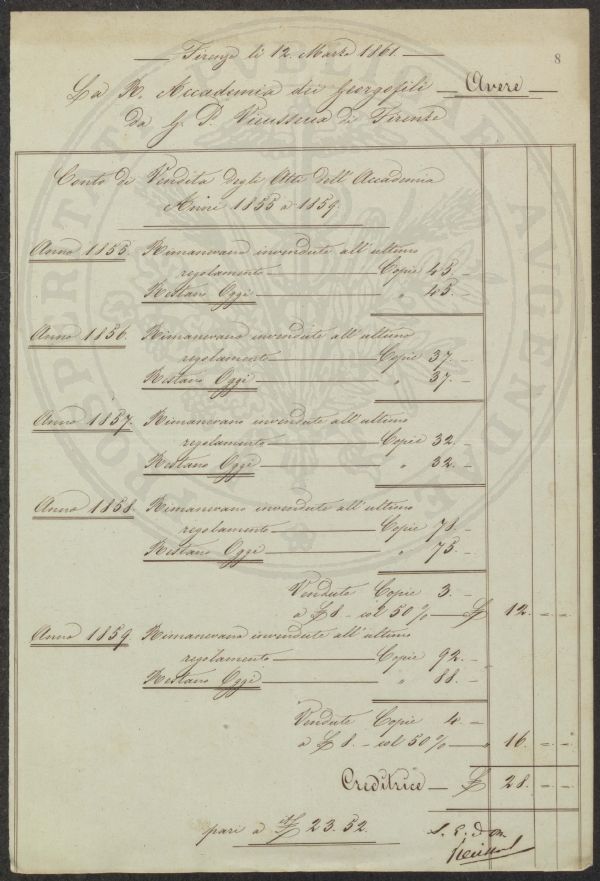 8
Firenze li 12. Marzo 1861.
La R. Accademia dei Georgofili Avere
Da G. P. Vieusseux di Firenze
Conto di Vendita degli Atti dell'Accademia
Anni 1855 a 1859
Anno 1855. Rimanevano invendute all'ultimo
regolamento Copie 45. -
Restano Oggi " 45. -
Anno 1856. Rimanevano invendute all'ultimo
regolamento Copie 37. -
Restano Oggi " 37. -
Anno 1857. Rimanevano invendute all'ultimo
regolamento Copie 32. -
Restano Oggi " 32. -
Anno 1858. Rimanevano invendute all'ultimo
regolamento Copie 78. -
Restano Oggi " 75. -
Vendute Copie 3. -
a £ 8. - col 50% £ 12. - -
Anno 1859. Rimanevano invendute all'ultimo
regolamento Copie 92. -
Restano Oggi " 88. -
Vendute Copie 4. -
a £ 8. - col 50% " 16. - -
Creditrice £ 28. - -
pari a 23.52.
S. E. d O.
Vieusseux
PROSPERITATI AUGENDAE